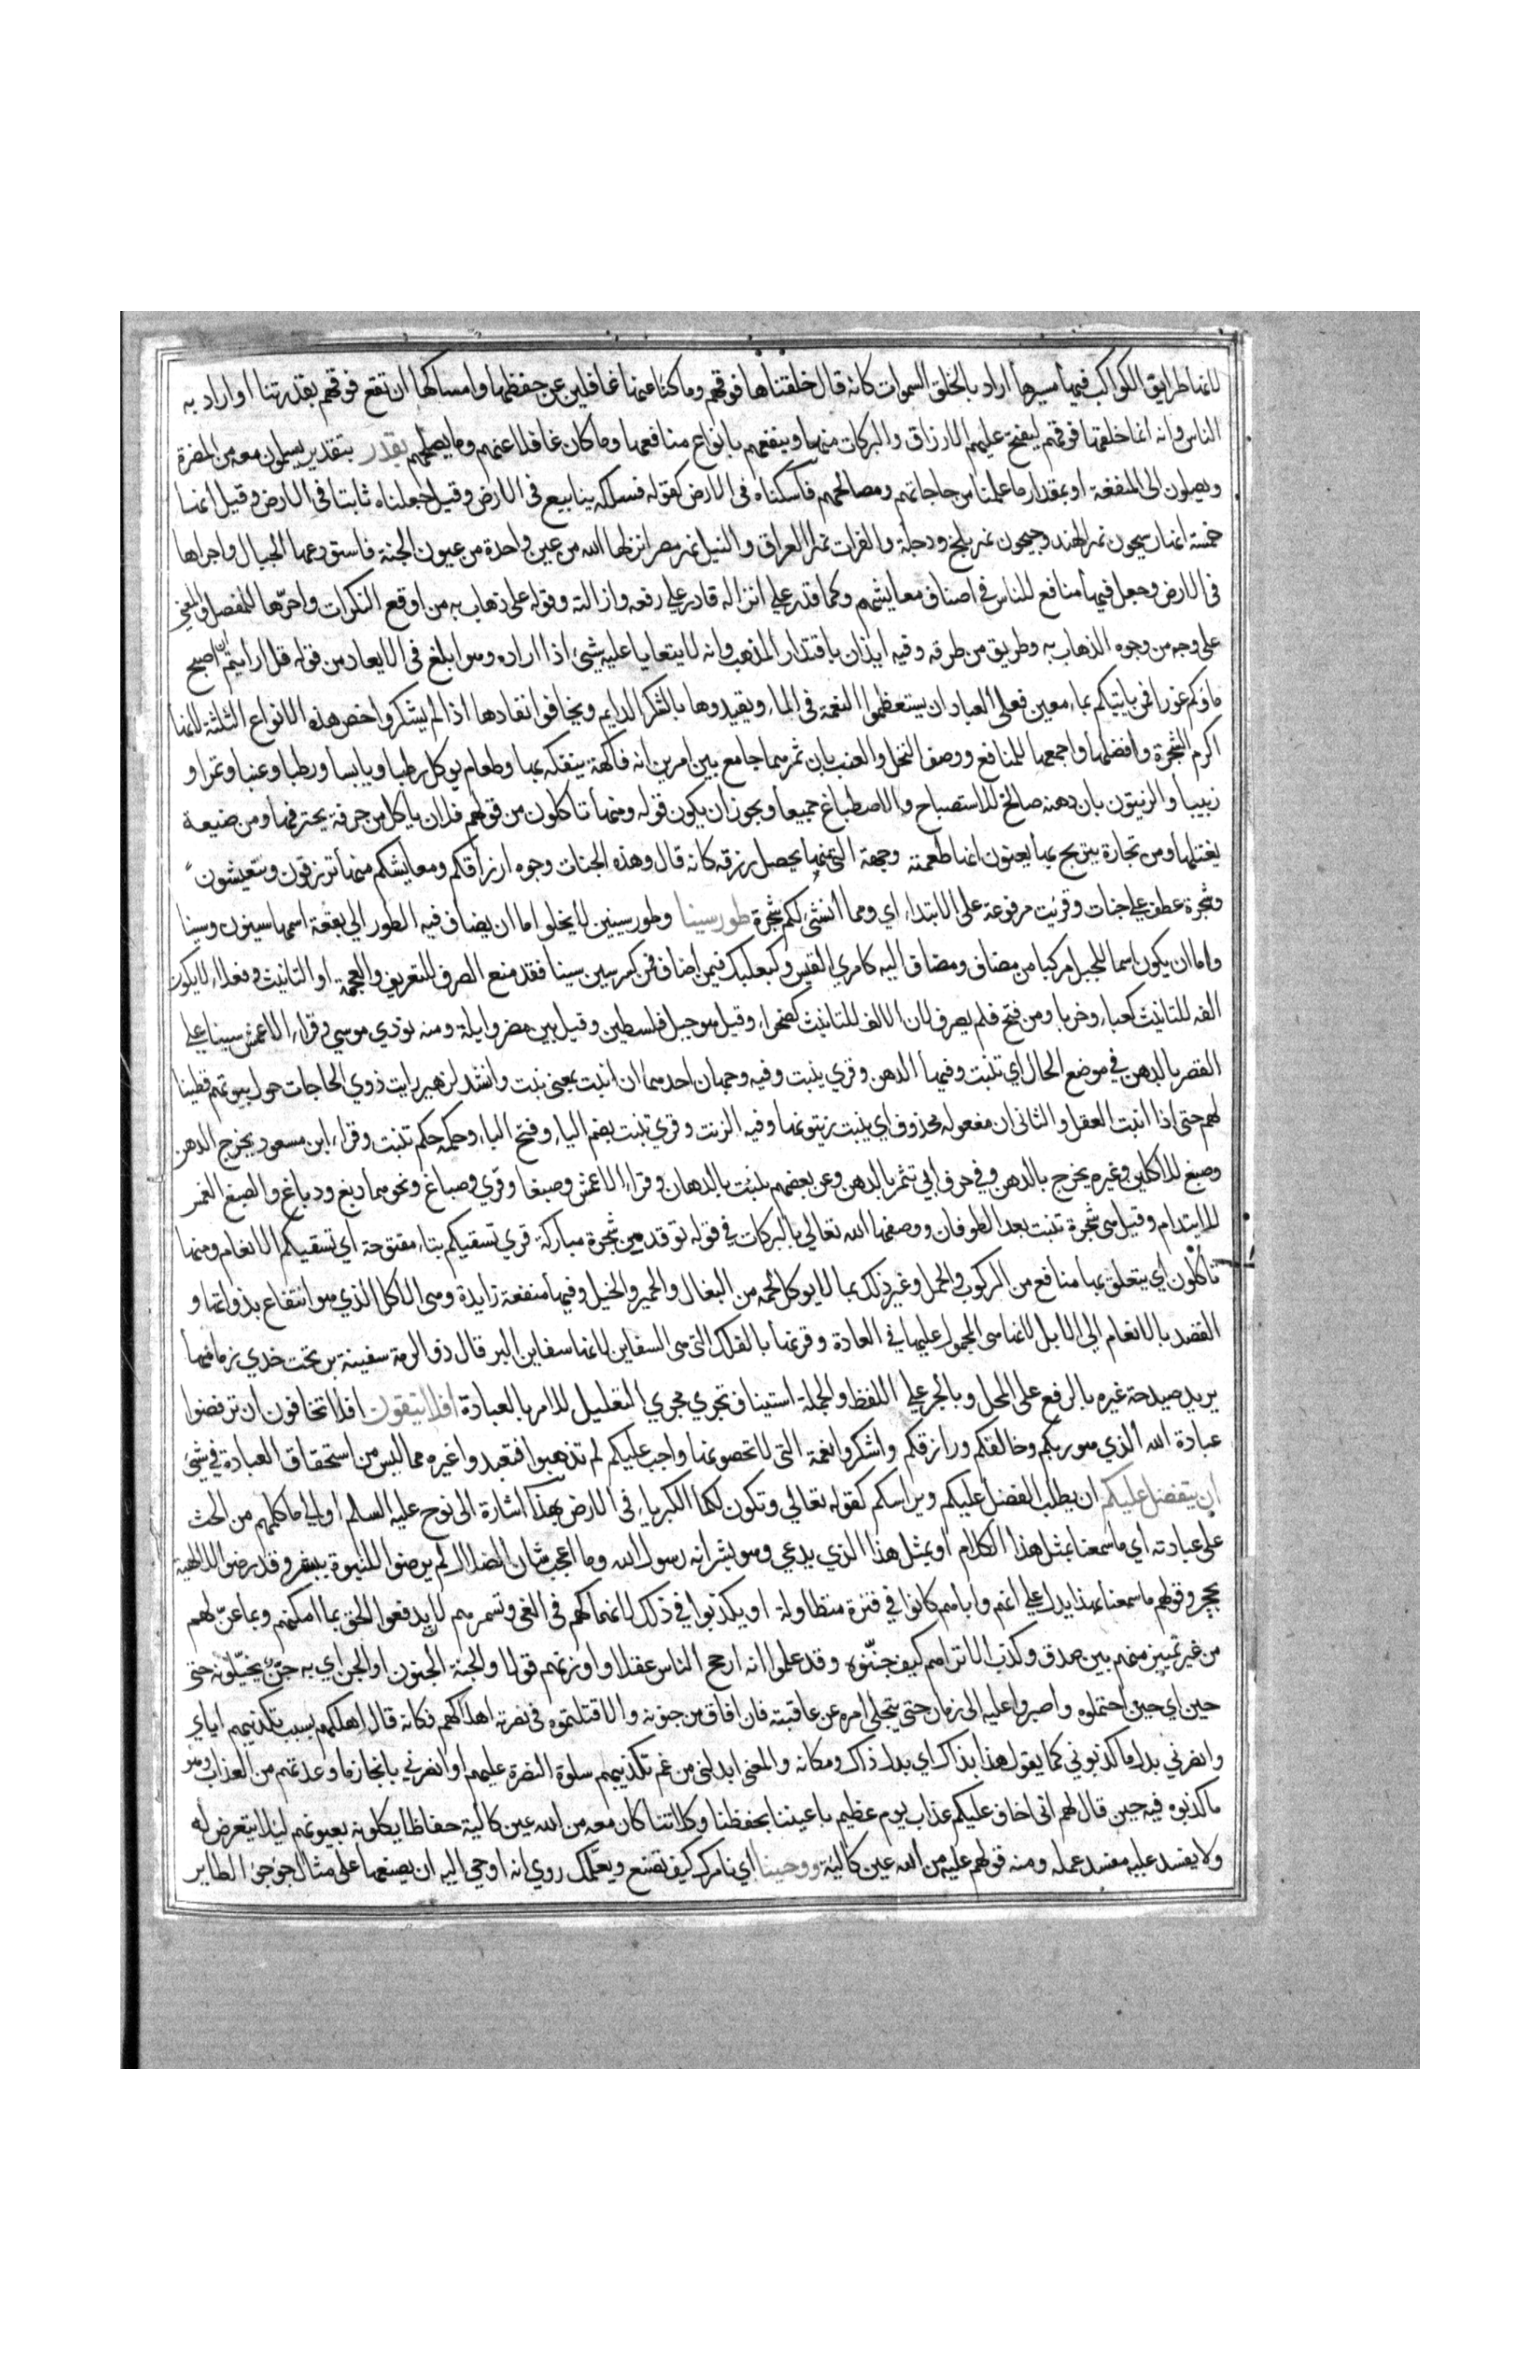 لانها طرايق الكواكب فيها مسيرها اراد بالخلق السموات كانه قال خلقناها فوقهم وما كنا عنها غافلين عن حفظها وامساكها ان تقع فوقهم بقدرتنا او اراد به
الناس وانه انما خلقها فوقهم ليفتح عليهم الارزاق والبركات منها وينفعهم بانواع منافعها وما كان غافلا عنهم وما يصلحهم بقدر بتقدير يسلمون معه من المضرة
ويصلون الى المنفعة او بمقدار ما علمنا من حاجاتهم ومصالحهم فاسكناه فى الارض كقوله فسلكه ينابيع فى الارض وقيل جعلناه ثابتا فى الارض وقيل انها
خمسة انهار سيحون نهر الهند وجيحون نهر بلخ ودجلة والفرات نهرا العراق والنيل نهر مصر انزلها الله من عين واحدة من عيون الجنة فاستودعها الجبال واجراها
فى الارض وجعل فيها منافع للناس في اصناف معايشهم وكما قدر علي انزاله قادر علي رفعه وازالته وقوله على ذهاب به من اوقع النكرات واحزها للمفصل والمعني
على وجه من وجوه الذهاب به وطريق من طرقه وفيه ايذان باقتدار المذهب وانه لا يتعايا عليه شيئ اذا اراده وهو ابلغ فى الايعاد من قوله قل ارايتم ان اصبح
ماؤكم غورا فمن ياتيكم بماء معين فعلى العباد ان يستعظموا النعمة فى الماء ويقيدوها بالشكر الدايم ويخافوا نفادها اذا لم يشكروا خص هذه الانواع الثلثة لانها
اكرم الشجرة وافضلها واجمعها للمنافع ووصف النخل والعنب بان ثمرهما جامع بين امرين انه فاكهة يتفكه بها وطعام يوكل رطبا ويابسا ورطبا وعنبا وتمرا و
زبيبا والزيتون بان دهنه صالح للاستصباح والاصطباغ جميعا ويجوز ان يكون قوله ومنها تاكلون من قولهم فلان ياكل من حرفة يحترفها ومن ضيعة
يغتلها ومن تجارة يتربح بها يعنون انها طعمته وجهة التى منها يحصل رزقه كانه قال وهذه الجنات وجوه ارزاقكم ومعايشكم منها ترتزقون وتتعيشون
وشجرة عطف علي جنات وقريت مرفوعة على الابتداء اي ومما انشئ لكم شجرة طور سينا وطور سينين لا يخلو اما ان يضاف فيه الطور الي بقعة اسمها سينون وسينا
واما ان يكون اسما للجبل مركبا من مضاف ومضاف اليه كامري القيس وكبعلبك فيمن اضاف فمن كسر سين سينا فقد منع الصرف للتعريف والعجمة او التانيث وفعلاء لا يكون
الفه للتانيث كعلباء وحربا ومن فتح فلم يصرف لان الالف للتانيث كصحراء وقيل هو جبل فلسطين وقيل بين مصر وايلة ومنه نودي موسي وقراء الاعمش سينا علي
القصر بالدهن في موضع الحال اي تنبت وفيها الدهن وقري ينبت وفيه وجهان احدهما ان انبت بمعنى نبت وانشد لزهير رايت ذوي الحاجات حول بيوتهم قطينا
لهم حتى اذا انبت العقل والثانى ان مفعوله محذوف اي ينبت زيتونها وفيه الزيت وقري تنبت بضم الياء وفتح الباء وحكمه حكم تنبت وقراء ابن مسعود يخرج الدهن
وصبغ للاكلين وغيره يخرج بالدهن وفي حرف ابي تثمر بالدهن وعن بعضهم ينبت بالدهان وقراء الاعمش وصبغا وقري وصباغ ونحوهما دبغ ودباغ والصبغ الغمر
للايتدام وقيل هى شجرة تنبت بعد الطوفان ووصفها الله تعالي بالبركات في قوله توقد من شجرة مباركة قري تسقيكم بتاء مفتوحة اي تسقيكم الانعام ومنها
تاكلون اي يتعلق بها منافع من الركوب والحمل وغير ذلك بما لا يوكل لحمه من البغال والحمير والخيل وفيها منفعة زايدة وهى الاكل الذي هو انتفاع بذواتها و
القصد بالانعام الى الابل لانها هى المحمول عليها في العادة وقرنها بالفلك التى هى السفاين لانها سفاين البر قال ذو الرمة سفينة بر تحت خدي زمامها
يريد صيدحة غيره بالرفع على المحل وبالجر علي اللفظ والجملة استيناف تجري مجري التعليل للامر بالعبادة افلا تتقون افلا تخافون ان ترفضوا
عبادة الله الذي هو ربكم وخالقكم ورازقكم واشكروا نعمة التى لا تحصونها واجب عليكم لم تذهبوا فتعبدوا غيره مما ليس من استحقاق العبادة في شيئ
ان يتفضل عليكم ان يطلب الفضل عليكم ويراسكم كقوله تعالي وتكون لكما الكبرياء فى الارض بهذا اشارة الى نوح عليه السلم او الي ما كلمهم من الحث
على عبادته اي ما سمعنا بمثل هذا الكلام او بمثل هذا الذي يدعي وهو بشر انه رسول الله وما اعجب شان الضلال لم يرضوا للنبوة ببشر وقد رضوا للالهية
بحجر وقولهم ما سمعنا بهذا يدل علي انهم واباهم كانوا في فترة متطاولة او يكذبوا في ذلك لانهماكهم فى الغى وتشمرهم لا يدفعوا الحق بما امكنهم وبما عن لهم
من غير تمييز منهم بين صدق وكذب الا تراهم كيف جننوه وقد علموا انه ارجح الناس عقلا واوزنهم قولا والجنة الجنون او الجن اي به جن يخيلونه حتى
حين اي حين احتملوه واصبروا عليه الى زمان حتى يتجلى امره عن عاقبته فان افاق من جنونه والا قتلتموه فى نصرته اهلاكهم فكانه قال اهلكهم بسبب تكذيبهم اياي
وانصرني بدل ما كذبوني كما يقول هذا بذاك اي بدل ذاك ومكانه والمعنى ابدلنى من غم تكذيبهم سلوة النصرة عليهم او انصرني بانجاز ما وعدتهم من العذاب وهو
ما كذبوه فيه حين قال لهم انى اخاف عليكم عذاب يوم عظيم باعيننا بحفظنا وكلاتنا كان معه من الله عين كالية حفاظا يكلونه بعيونهم ليلا يتعرض له
ولا يفسد عليه مفسد عمله ومنه قولهم عليه من الله عين كالية ووحينا اي نامرك كيف تصنع ويعلمك روي انه اوحي اليه ان يصنعها على مثال جؤجؤ الطاير